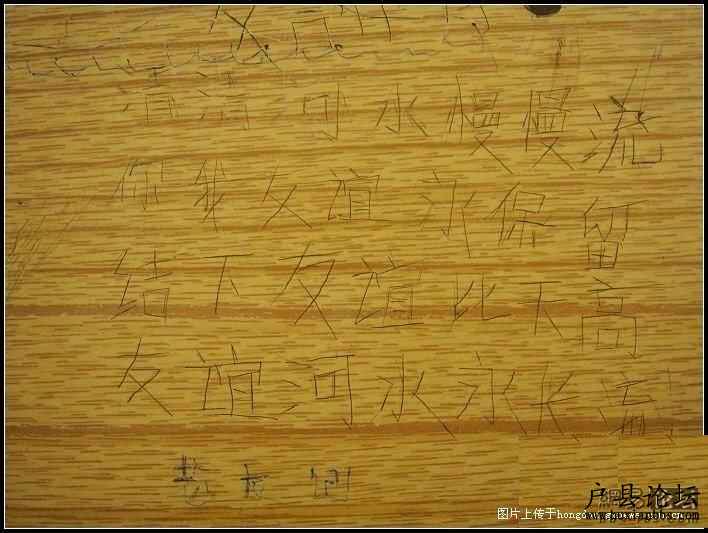 清清河水慢慢流
你我友谊永保留
结下友谊比天高
友谊河水永长流
户县论坛
图片上传于